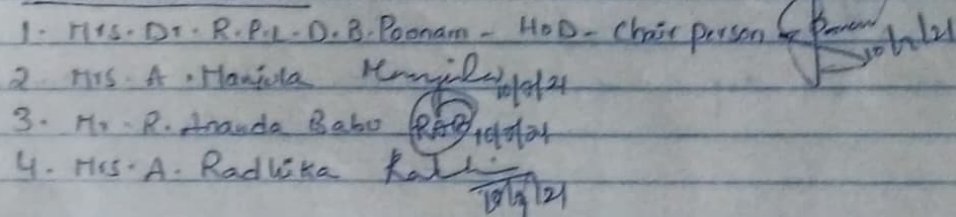 1. Mrs. Dr. R.P.L.D.B. Poonam - HOD - Chair person Poonam 10/7/21
2. Mrs. A. Manjula Manjula 10/7/21
3. Mr. R. Ananda Babu RAB 10/7/21
4. Mrs. A. Radhika 10/7/21